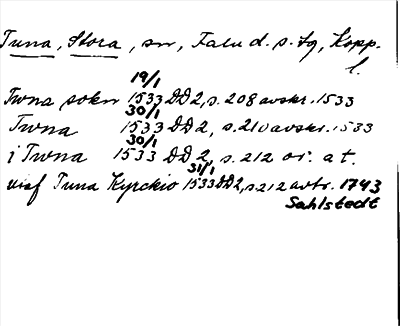 Tuna, Stora, sn, Falu d. s. fg, Kopp.
l.
19/1
Twna sokn 1533 DD2, s. 208 avskr. 1533
30/1
Twna 1533 DD2, s. 210 avskr. 1533
30/1
i Twna 1533 DD2, s. 212 or. at.
31/1
uiaf Tuna Kyrckio 1533 DD2, s 212 avtr. 1743
Sahlstedt